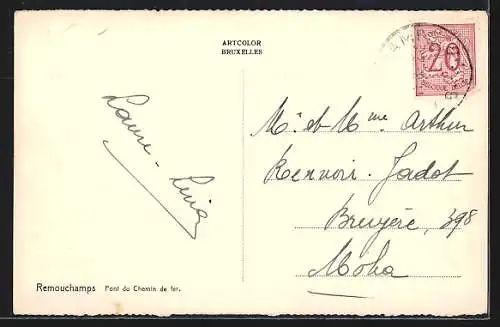 ARTCOLOR
BRUXELLES
20
Laure - Lina
Mr et Mme Arthur
Renvoi. Jadot
Bruyère, 398
Moha
Remouchamps Pont du Chemin de fer.